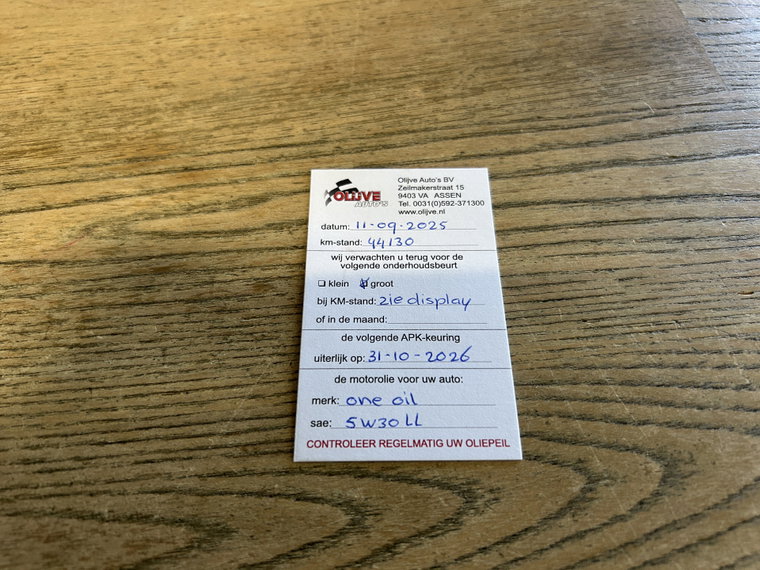 OLIJVE
AUTO'S
Olijve Auto's BV
Zeilmakerstraat 15
9403 VA ASSEN
Tel. 0031(0)592-371300
www.olijve.nl
datum: 11-09-2025
km-stand: 44130
wij verwachten u terug voor de
volgende onderhoudsbeurt
klein groot
bij KM-stand: zie display
of in de maand:
de volgende APK-keuring
uiterlijk op: 31-10-2026
de motorolie voor uw auto:
merk: one oil
sae: 5W30 LL
CONTROLEER REGELMATIG UW OLIEPEIL